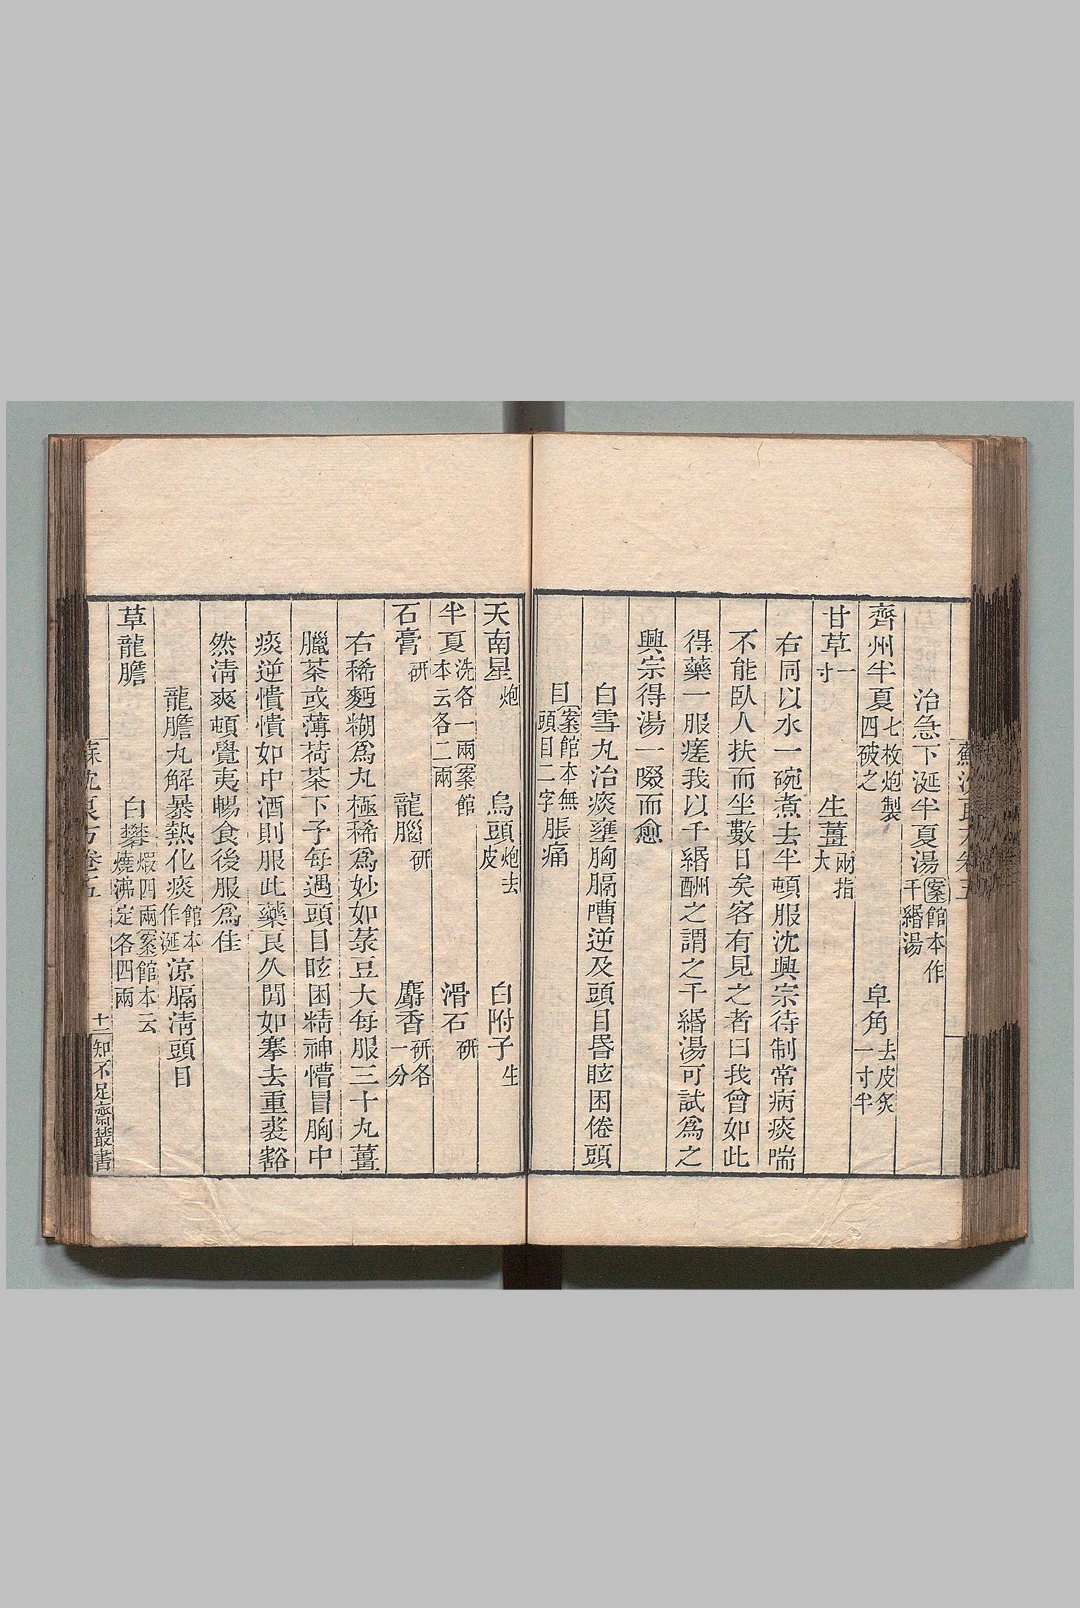 治急下涎半夏湯案館本作千緡湯
齊州半夏七枚炮製四破之 皁角去皮炙一寸半
甘草一寸 生薑兩指大
右同以水一碗煮去半頓服沈興宗待制常病痰喘
不能臥人扶而坐數日矣客有見之者曰我曾如此
得藥一服瘥我以千緡酬之謂之千緡湯可試爲之
興宗得湯一啜而愈
白雪丸治痰壅胸膈嘈逆及頭目昏眩困倦頭
目案館本無頭目二字脹痛
天南星炮 烏頭炮去皮 白附子生
半夏洗各一兩案館本云各二兩 滑石研
石膏研 龍腦研 麝香研各一分
右稀麪糊爲丸極稀爲妙如菉豆大每服三十丸薑
臘茶或薄荷茶下予每遇頭目眩困精神懵冒胸中
痰逆憒憒如中酒則服此藥良久閒如搴去重裘豁
然淸爽頓覺夷暢食後服爲佳
龍膽丸解暴熱化痰館本作涎涼膈淸頭目
草龍膽 白礬煆四兩案館本云燒沸定各四兩
蘇沈良方卷五 十一 知不足齋叢書